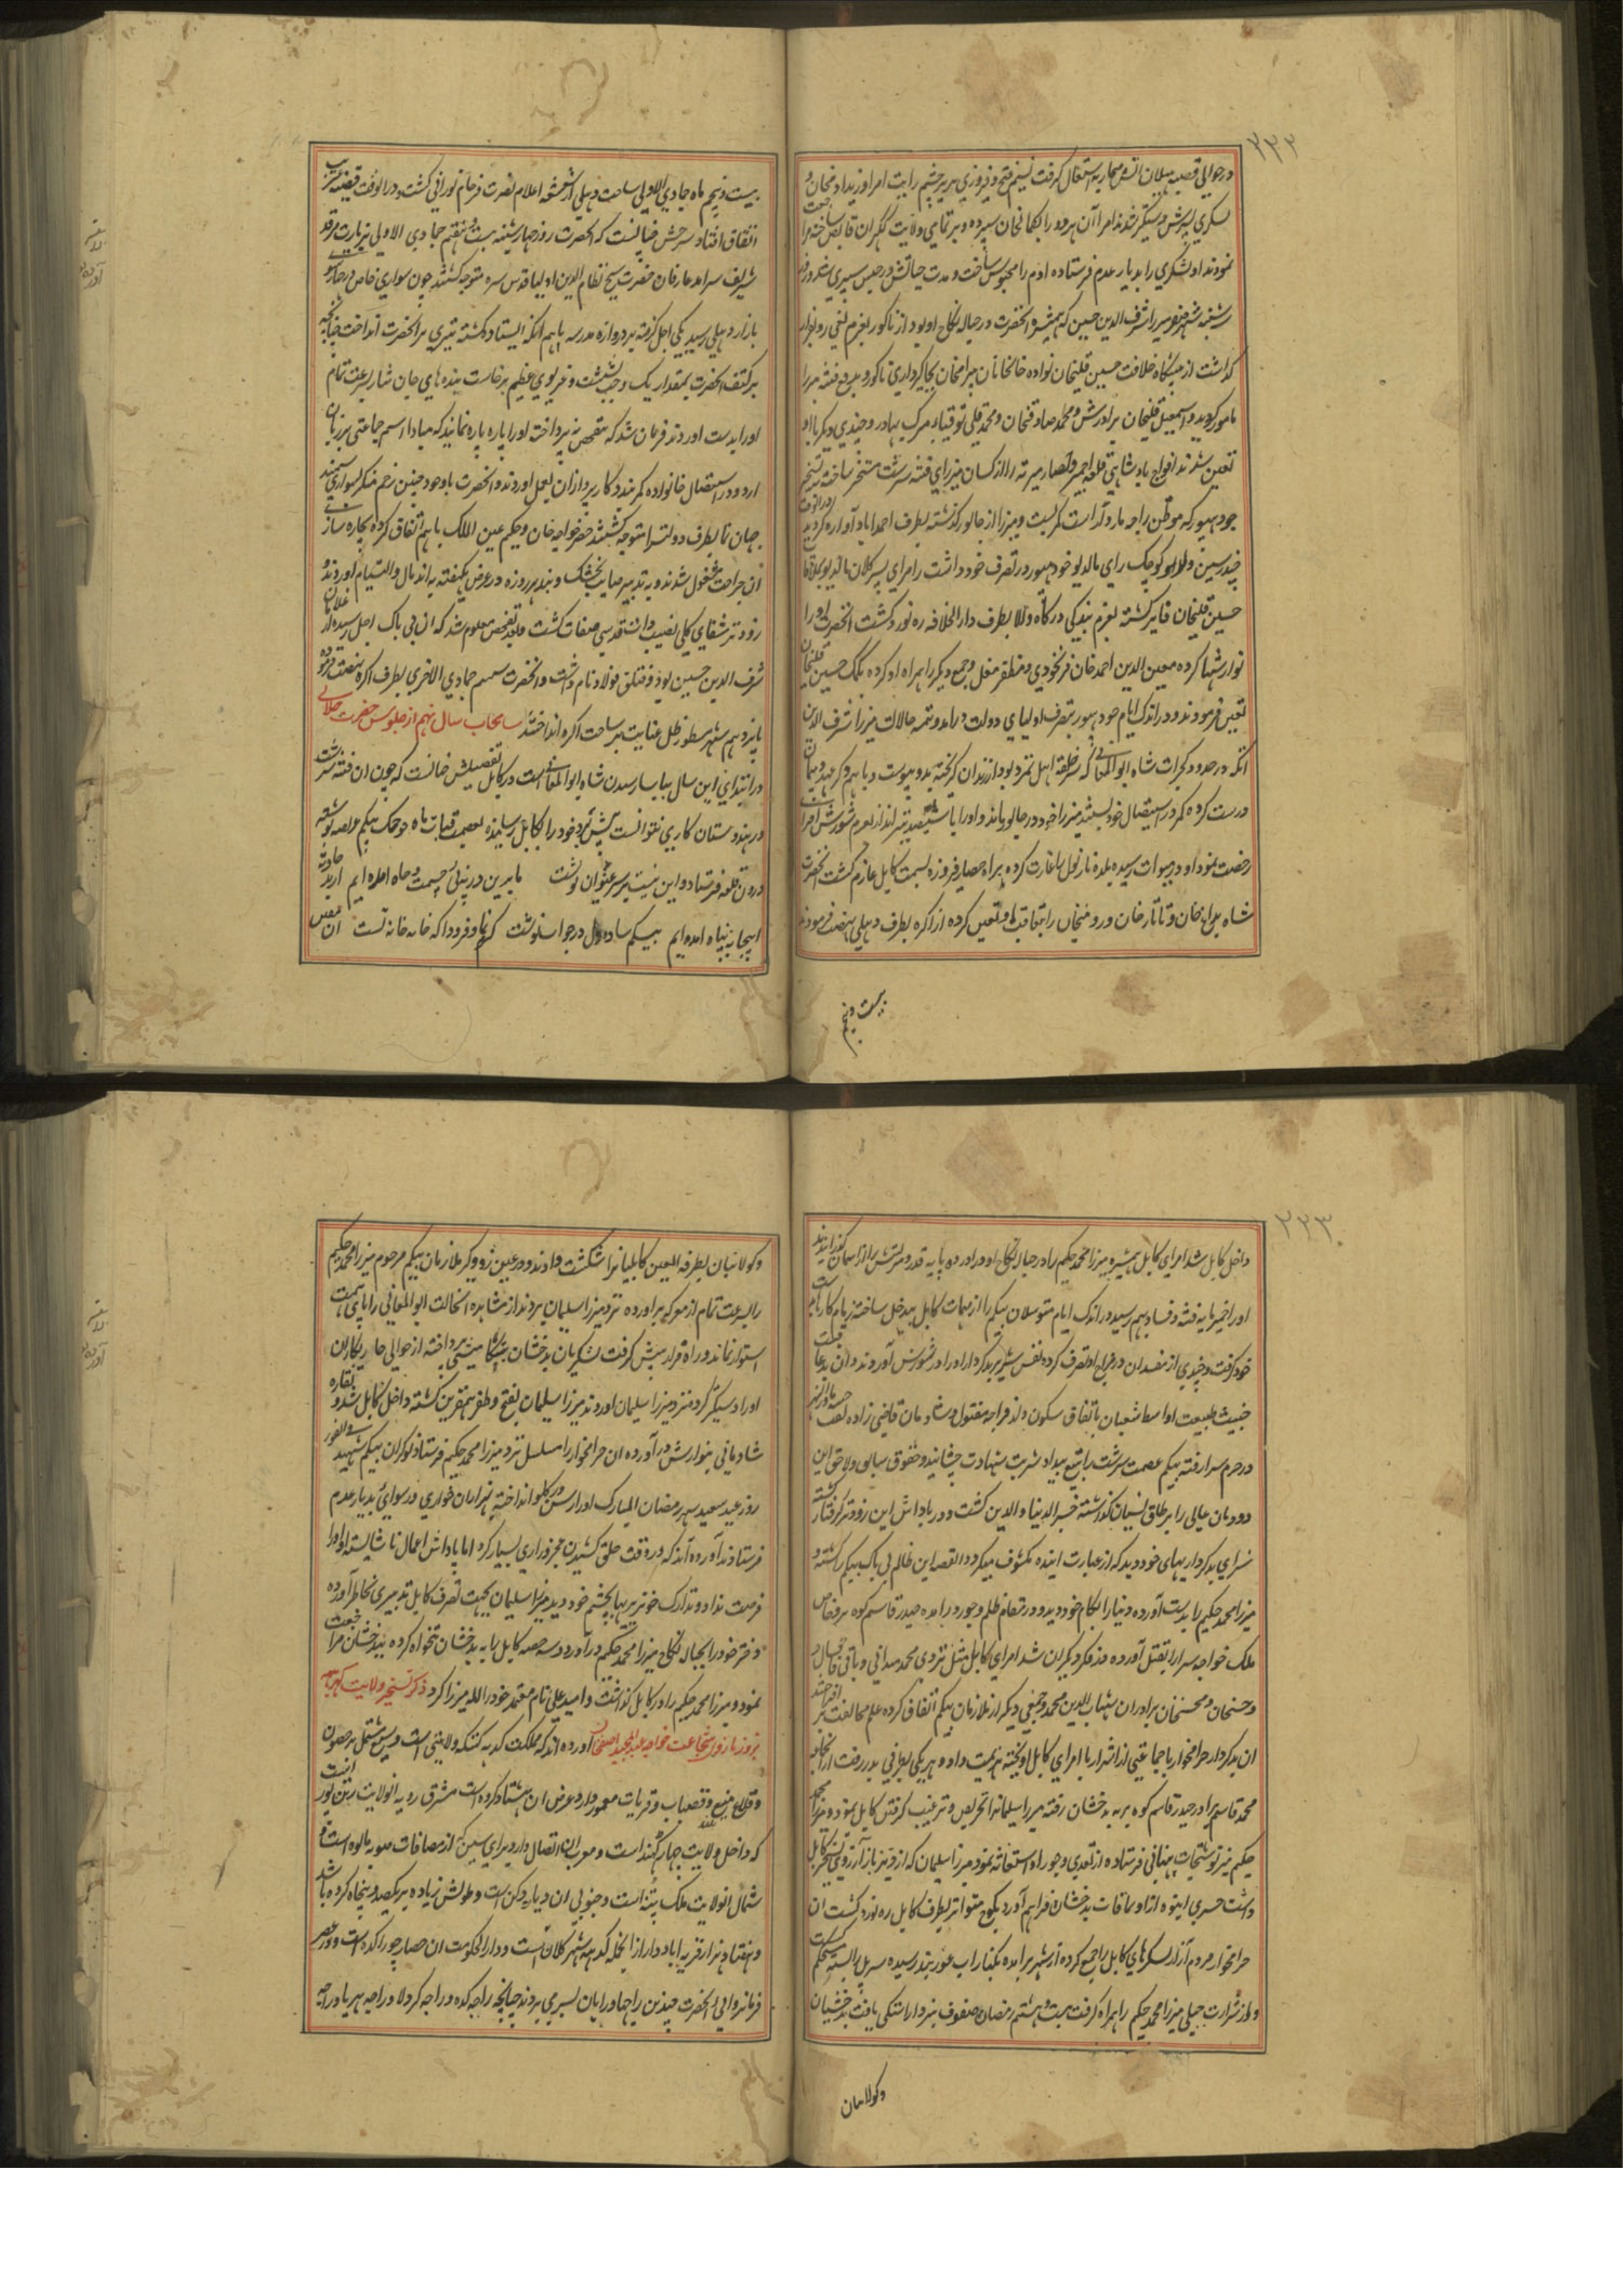 ۲۲۲
در حوالی قصبه هیلان آتش محاربه اشتعال گرفت نسیم فتح و فیروزی بر پرچم رایت امرا وزید آدمخان و
لشکری پسرش دستگیر شدند امرا آن هر دو را بکمالخان سپرده و بر تمامی ولایت لکهران قابض ساخته مراجعت
نمودند او لشکری را بدیار عدم فرستاده آدم را محبوس ساخت و مدت حیاتش در حبس سپری شد روز
شنبه شهر صفر میرزا شرف الدین حسین که همشیره آنحضرت در حباله نکاح او بود از ناگور بعزم بغی رو بفرار
گذاشت از پیشگاه خلافت حسین قلیخان نواده خانخانان بیرامخان بجاگیرداری ناگور و بدفع فتنه میرزا
مامور گردید و اسمعیل قلیخان برادرش و محمد صادقخان و محمد قلی توقبای و میرک بهادر و چندی دیگر با او
تعین شدند افواج پادشاهی قلعه اجمیر و حصار میرته را از کسان میرزای فتنه سرشت مستخر ساخته به تسخیر
جودهپور که موطن راجه مارو است کمر بست و میرزا از جالور گذشته بطرف احمداباد آواره گردید در انوقت
چندرسین ولد کوچک رای مالدیو جودهپور در تصرف خود داشت رامرای پسر کلان مالدیو بملاقات
حسین قلیخان فایز گشته بعزم بندگی درگاه والا بطرف دارالخلافه ره نورد گشت آنحضرت او را
نوازشها کرده معین الدین احمد خان فرنخودی و مظفر مغل و جمع دیگر را همراه او کرده بکمک حسین قلیخان
تعین فرمودند و در اندک ایام جودهپور بتصرف اولیای دولت درامد و تتمه حالات میرزا شرف الدین
آنکه در حدود گجرات شاه ابوالمعالی که سرحلقه اهل تمرد بود از زندان گریخته بدو پیوست و با همدیگر عهد و پیمان
درست کرده کمر در استیصال خود بستند میرزا خود در جالور مانده و او را با سیصد تیرانداز بعزم شورش افزا
رخصت نمود او در میوات رسیده بلده نارنول را غارت کرده براه حصار فیروزه بسمت کابل عازم گشت آنحضرت
شاه بداغخان و تاتارخان و رومیخان را بتعاقب او تعین کرده از اگره بطرف دهلی نهضت فرمودند
بیست و پنجم
بیست و پنجم ماه جمادی الاولی ساحت دهلی از شعشعه اعلام نصرت فرجام نورانی گشت و در انوقت قضیه غریب
اتفاق افتاد و سرحش چنانست که آنحضرت روز چهارشنبه بیست و هفتم جمادی الاولی بزیارت مرقد
شریف سرامد عارفان حضرت شیخ نظام الدین اولیا قدس سره متوجه گشتند چون سواری خاص در چارسوی
بازار دهلی رسید یکی اجل گرفته بر دروازه مدرسه ماهم انکه ایستاده گشته تیری بر آنحضرت انداخت چنانچه
بر کتف آنحضرت بمقدار یک وجب نشست و غریوی عظیم برخاست بنده های جان نثار بسرعت تمام
او را بدست اوردند فرمان شد که بتفحص نپرداخته او را پاره پاره نمایند که مبادا اسم جماعتی بر زبان
ارد و در استیصال خانواده کمر بندد کارپردازان بعمل اوردند و آنحضرت باوجود چنین زخم منکر بسواری سمند
جهان نما بطرف دولتسرا متوجه گشتند خضر خواجه خان و حکیم عین الملک باهم اتفاق کرده بچاره سازی
ان جراحت مشغول شدند و به تدبیر صایب بخشک و بند هر روزه در عرض یکهفته به اندمال و التیام اوردند
زودتر شفای کلی نصیب ذات قدسی صفات گشت و بعد تفحص معلوم شد که ان بی باک اجل رسیده از غلامان
شرف الدین حسین بود و قتلق فولاد نام داشت و آنحضرت ششم جمادی الاخری بطرف اگره نهضت فرموده
پانزدهم شهر مسطور ظل عنایت بر ساحت اگره انداختند سانحات سال نهم از جلوس حضرت جلالی
در ابتدای این سال بیاسا رسیدن شاه ابوالمعالی است در کابل تفصیلش چنانست که چون ان فتنه سرشت
در هندوستان کاری نتوانست پیش برد خود را بکابل رسانیده بعصمت قباب ماه جوجک بیگم عرضه نوشته
درون قلعه فرستاد و این بیت بر سر عنوان نوشت ما بدین در نه پی حشمت و جاه امده ایم از بد حادثه
اینجا به پناه امده ایم بیگم ساده دل در جواب نوشت کرم نما و فرود ا که خانه خانه تست ان لعین
۲۲۳
داخل کابل شد امرای کابل همشیره میرزا محمد حکیم را در حباله نکاح او دراورده پایه قدر و منزلتش را از اسمان گذرانیدند
او را خمیر مایه فتنه و فساد بهم رسید در اندک ایام متوسلان بیگم را از مهمات کابل بیدخل ساخته زمام کار بدست
خود گرفت و چندی از مفسدان در مزاج او تصرف کرده نفس شریر بدکردار او را در شورش آوردند و ان بدعاقبت
خبیث طبیعت اواسط شعبان باتفاق سکون ولد قراجه مقتول و شادمان قاضی زاده
در حرم سرا رفته بیگم عصمت سرشت را بتیغ بیداد شربت شهادت چشانید و حقوق سابق و لاحق این
دودمان عالی را بر طاق نسیان گذاشته خسر الدنیا والدین گشت و در پاداش این زودتر گرفتار گشته
سزای بدکرداریهای خود دید که از عبارت اینده مکشوف میگردد القصه این ظالم بی باک بیگم را کشته و
میرزا محمد حکیم را بدست آورده دنیا را بکام خود دید و در مقام ظلم و جور درامده حیدر قاسم کوه بر و خاص
ملک خواجه سرا را بقتل آورده در فکر دیگران شد امرای کابل مثل تردی محمد میدانی و باقی قاقشال و
و حسنخان و محسنخان برادران شهاب الدین محمد و جمعی دیگر از ملازمان بیگم اتفاق کرده علم مخالفت بر افراختند
ان بدکردار حرامخوار با جماعتی از اشرار با امرای کابل اویخته هزیمت داده هر یکی بطرفی بدر رفت از انجمله
محمد قاسم برادر حیدر قاسم کوه بر به بدخشان رفته میرزا سلیمانرا تحریص و ترغیب گرفتن کابل نمود و میرزا محمد
حکیم نیز نوشتجات پنهانی فرستاده از تعدی و جور او استغاثه نمود میرزا سلیمان که از دیر باز آرزوی تسخیر کابل
داشت حشری انبوه از اویماقات بدخشان فراهم آورد بکوچ متواتر بطرف کابل ره نورد گشت ان
حرامخوار مردم آزار لشکرهای کابل را جمع کرده از شهر برامده بکنار اب غوربند رسیده سر پل را بسته مستحکم
و از شرارت جبلی میرزا محمد حکیم را همراه گرفت بیست و هشتم رمضان صفوف نبرد اراستگی یافت بدخشیان
وکولابیان
وکولابیان بطرفة العین کابلیانرا شکست دادند و در عین زد و گیر ملازمان بیگم مرحوم میرزا محمد حکیم
را بسرعت تمام از معرکه براورده نزد میرزا سلیمان بردند از مشاهده اینحالت ابوالمعالی را پای همت
استوار نماند و راه فرار پیش گرفت لشکریان بدخشان بتکامیشی پرداخته از حوالی چاریکاران
او را دستگیر کرده نزد میرزا سلیمان اوردند میرزا سلیمان بفتح و ظفر همقرین گشته داخل کابل شد و نقاره
شادیانی بنوازش درآورده ان حرامخوار را مسلسل نزد میرزا محمد حکیم فرستاد نوکران بیگم شهید فی الفور
روز عید سعید شهر رمضان المبارک او را رسن در گلو انداخته بهزاران خواری و رسوائی بدیار عدم
فرستادند آورده اند که در وقت حلق کشیدن عجز و زاری بسیار کرد اما پاداش اعمال ناشایسته او را
فرصت نداد و تدارک خونریزیها بچشم خود دید میرزا سلیمان بجهت تصرف کابل تدبیری بخاطر آورده
دختر خود را بحباله نکاح میرزا محمد حکیم درآورد و سه حصه کابل را به بدخشان تنخواه کرده ببدخشان مراجعت
نمود و میرزا محمد حکیم را در کابل گذاشت و امید علی نام معتمد خود را لله میرزا کرد ذکر تسخیر ولایت کدهه
بزور بازوی شجاعت خواجه عبدالمجید اصفخان آورده اند که مملکت کدهه کتنکه ولایتی است وسیع مشتمل بر حصون
و قلاع منیع و قصبات و قریات معمور دارد و عرض ان هشتاد کروه است مشرق رویه انولایت رتن پور است
که داخل ولایت جهارکهند است و مغرب ان اتصال دارد برای سین که از مضافات صوبه مالوه است و
شمال انولایت ملک پتنه است و جنوبی ان دیار دکن است و طولش زیاده بر یکصد و پنجاه کروه باشد
و هفتاد هزار قریه اباد دارد از انجمله کدهه شهر کلان است و دارالحکومت ان حصار چوراگده است و در عصر
فرمانروایی آنحضرت چندین راجها و رایان بسر می بردند چنانچه راجه کده و راجه کرولا و راجه هریا و راجه